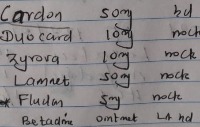 Cardon 50mg bd
Duocard 10mg nock
Zyrova 10mg nock
Lamnet 50mg nock
* Fludan 5mg nock
Betadine ointmet LA bd